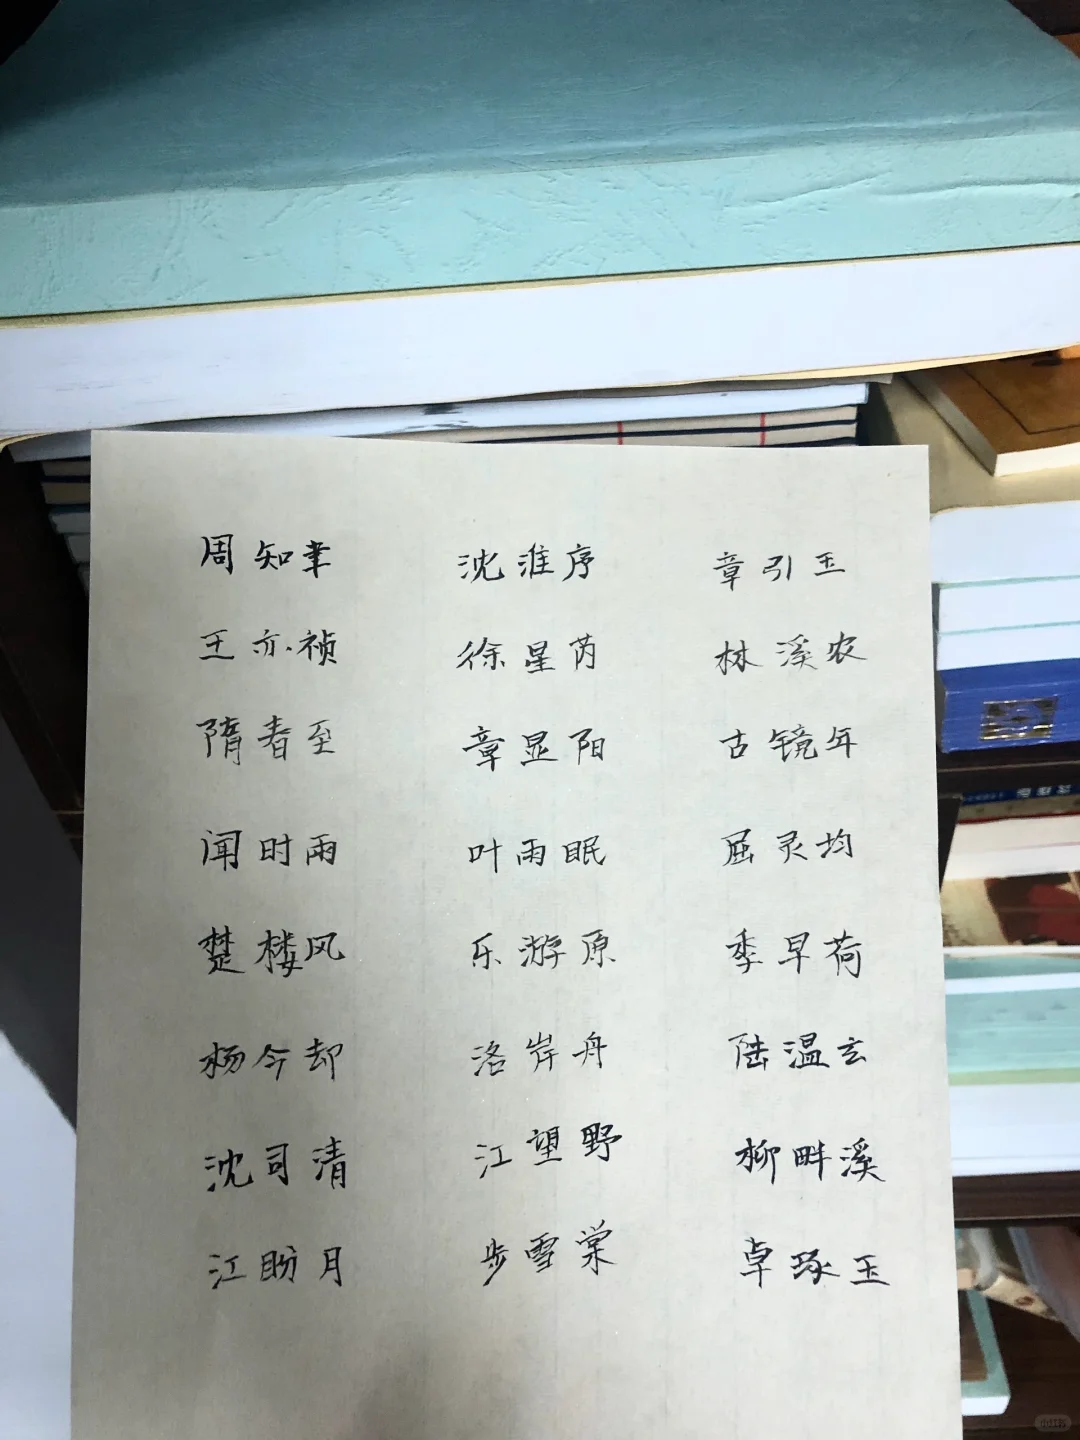 周知幸 沈淮序 章引玉
王亦祯 徐星芮 林溪农
隋春至 章显阳 古镜年
闻时雨 叶雨眠 屈灵均
楚楼风 乐游原 季早荷
杨今却 洛岸舟 陆温玄
沈司清 江望野 柳畔溪
江盼月 步雪棠 卓琢玉
小红书